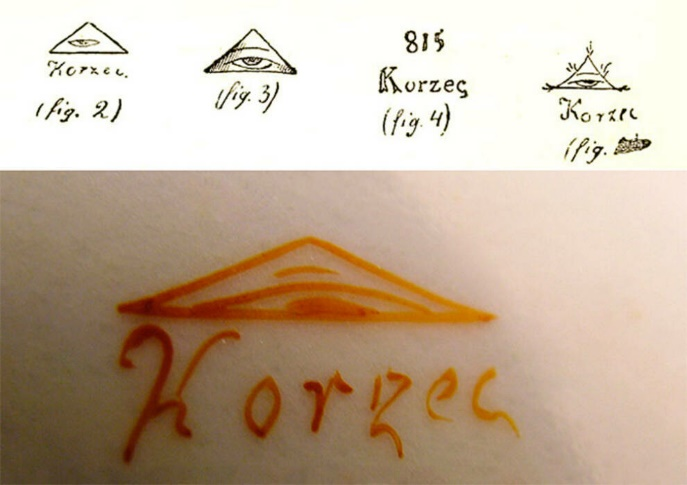 Korzec.
(fig. 2)
(fig. 3)
815
Korzec
(fig. 4)
Korzec
(fig.
Korzec